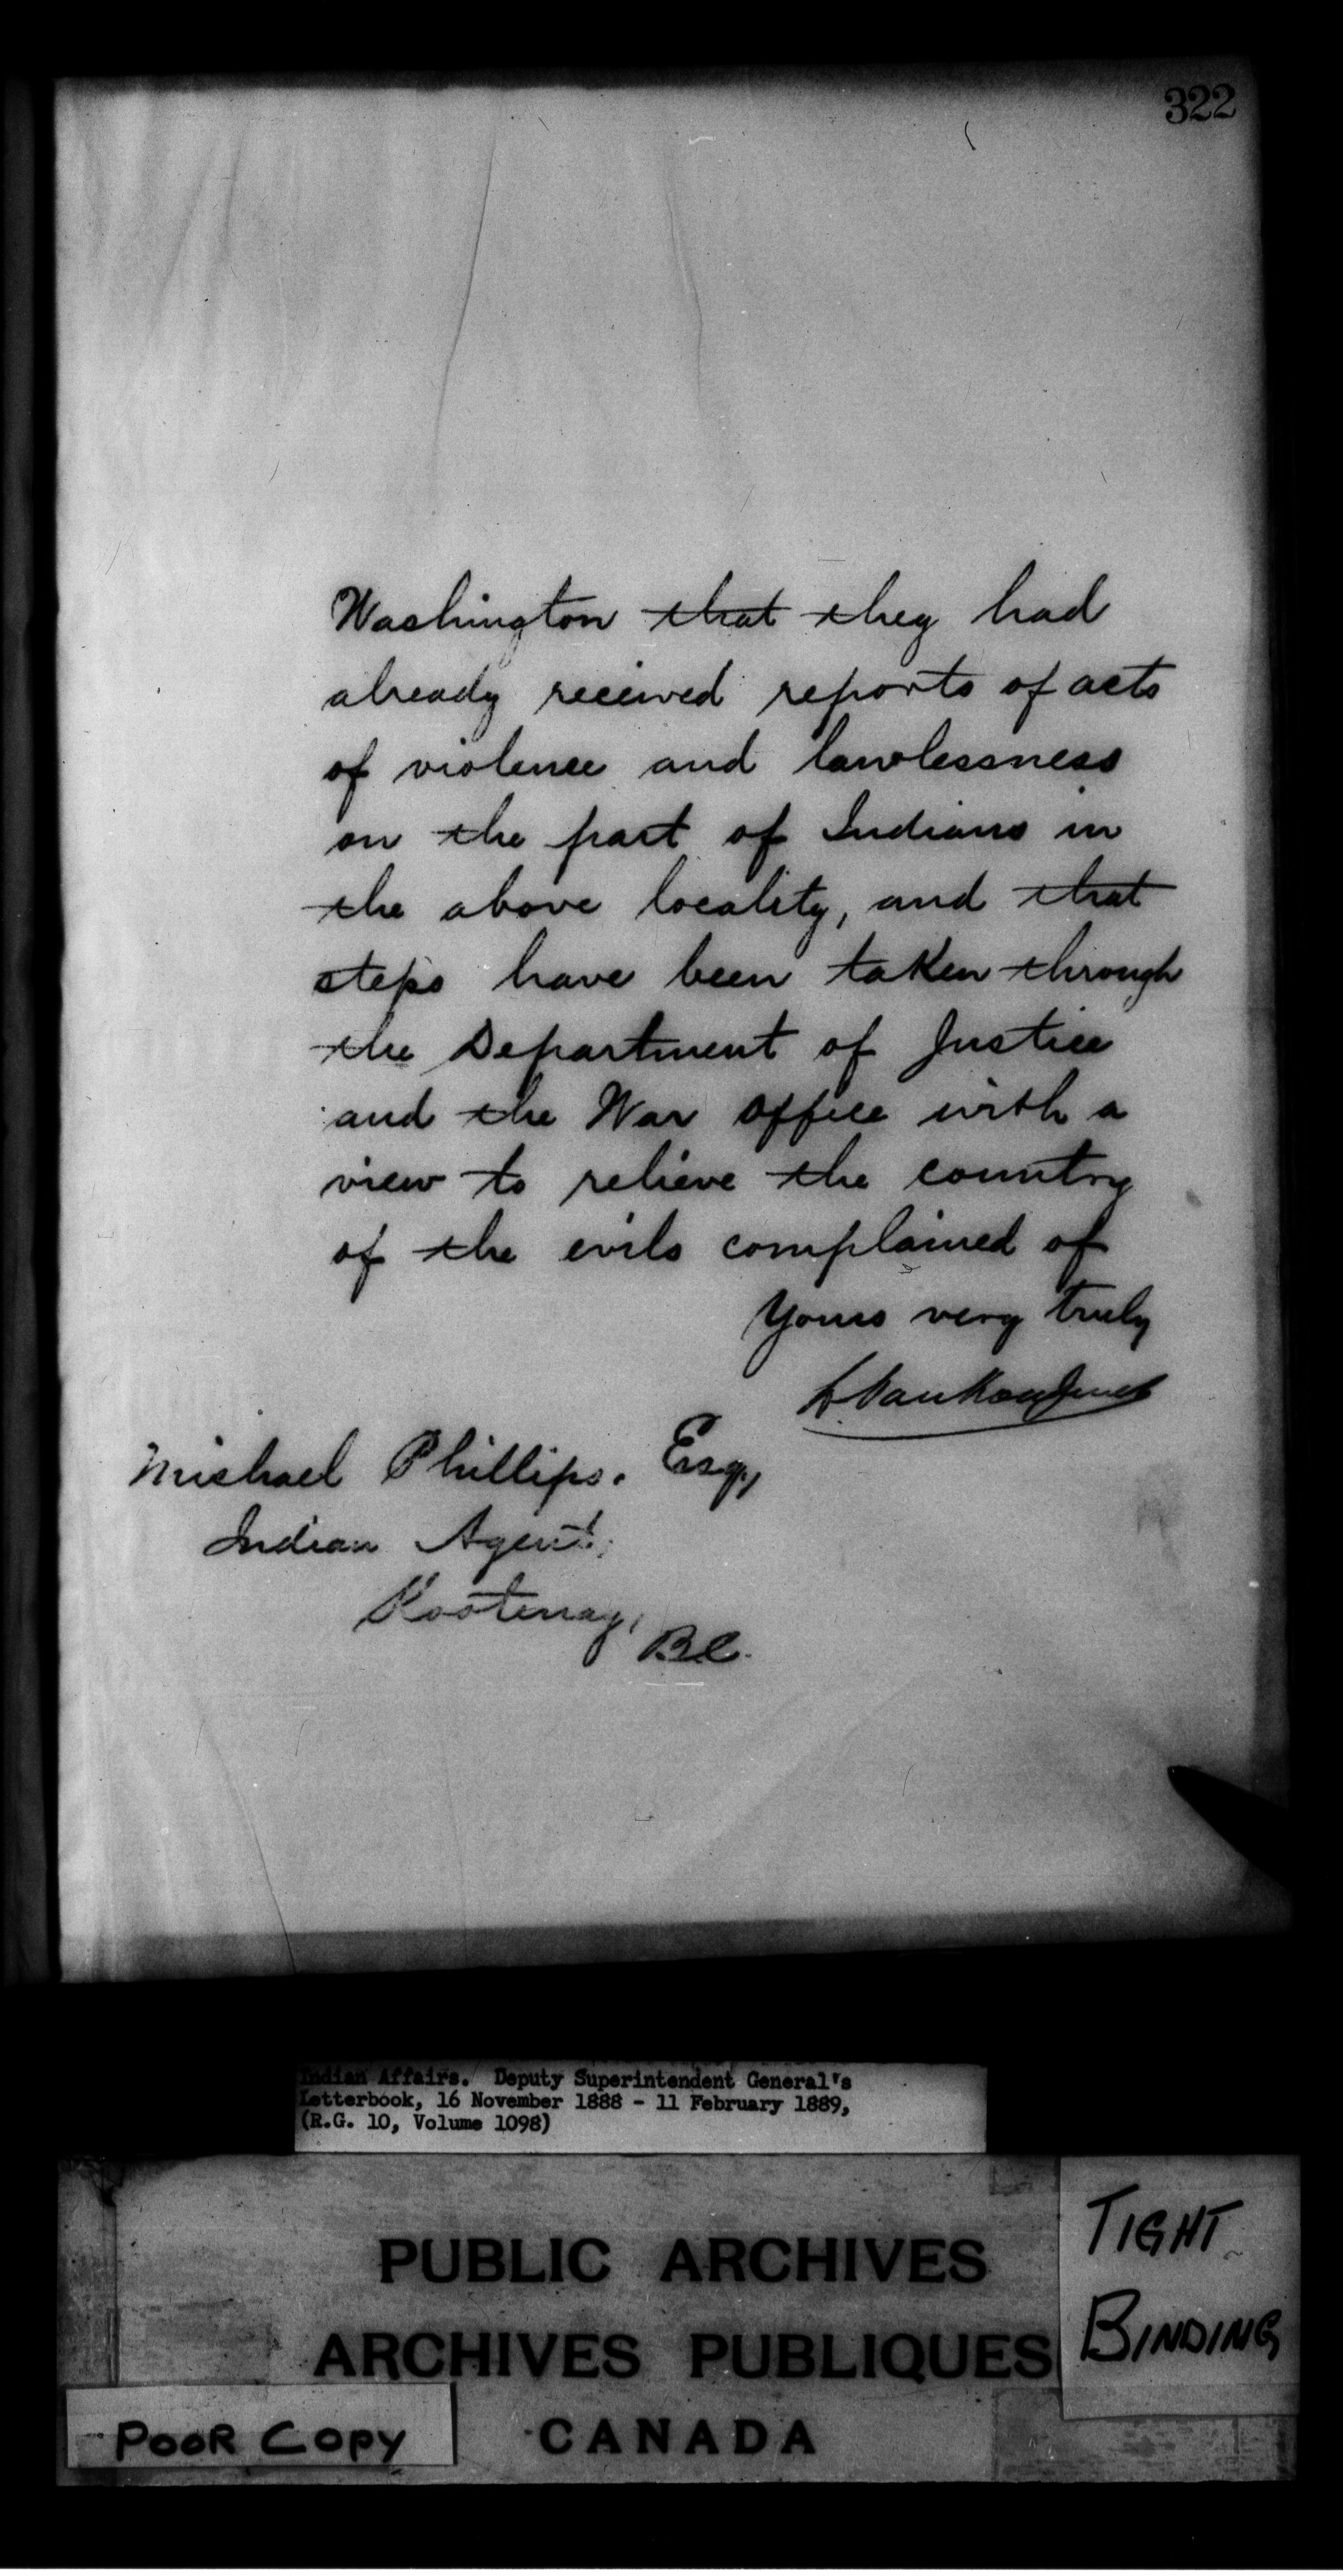 322
Washington that they had
already received reports of acts
of violence and lawlessness
on the part of Indians in
the above locality, and that
steps have been taken through
the Department of Justice
and the War Office with a
view to relieve the country
of the evils complained of
Yours very truly
L. VanKoughnet
Michael Phillips. Esq.,
Indian Agent,
Kootenay,
B.C.
Indian Affairs. Deputy Superintendent General's
Letterbook, 16 November 1888 - 11 February 1889,
(R.G. 10, Volume 1098)
PUBLIC ARCHIVES
ARCHIVES PUBLIQUES
CANADA
TIGHT
BINDING
POOR COPY